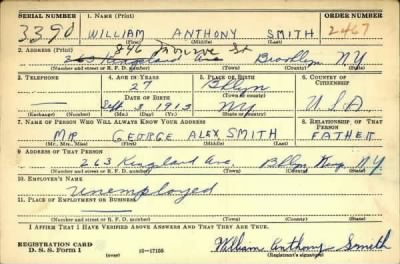 SERIAL NUMBER 1. NAME (Print) ORDER NUMBER
3390 WILLIAM ANTHONY SMITH 2467
(First) (Middle) (Last)
2. ADDRESS (Print) 846 Monroe St
263 Kingsland Ave Brooklyn NY
(Number and street or R. F. D. number) (Town) (County) (State)
3. TELEPHONE 4. AGE IN YEARS 5. PLACE OF BIRTH 6. COUNTRY OF CITIZENSHIP
27 Bklyn
DATE OF BIRTH
— Sept 8 1913 NY U.S.A
(Exchange) (Number) (Mo.) (Day) (Yr.) (State or country)
7. NAME OF PERSON WHO WILL ALWAYS KNOW YOUR ADDRESS 8. RELATIONSHIP OF THAT PERSON
MR GEORGE ALEX SMITH FATHER
(Mr., Mrs., Miss) (First) (Middle) (Last)
9. ADDRESS OF THAT PERSON
263 Kingsland Ave. Bklyn King. N.Y.
(Number and street or R. F. D. number) (Town) (County) (State)
10. EMPLOYER'S NAME
Unemployed
11. PLACE OF EMPLOYMENT OR BUSINESS
(Number and street or R. F. D. number) (Town) (County) (State)
I AFFIRM THAT I HAVE VERIFIED ABOVE ANSWERS AND THAT THEY ARE TRUE.
REGISTRATION CARD
D. S. S. Form 1 (over) 16—17105 William Anthony Smith
(Registrant's signature)